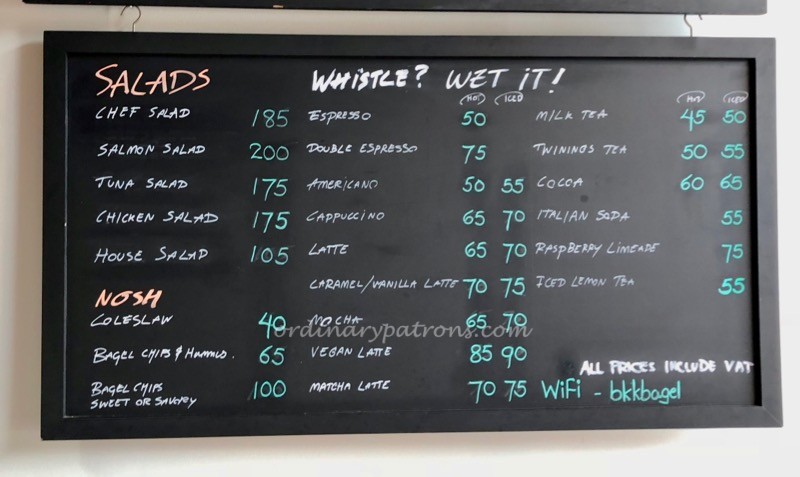 SALADS
CHEF SALAD 185
SALMON SALAD 200
TUNA SALAD 175
CHICKEN SALAD 175
HOUSE SALAD 105
NOSH
COLESLAW 40
BAGEL CHIPS & HUMMUS. 65
BAGEL CHIPS 100
SWEET OR SAVORY
WHISTLE? WET iT!
HOT ICED
ESPRESSO 50
DOUBLE ESPRESSO 75
AMERICANO 50 55
CAPPUCCINO 65 70
LATTE 65 70
CARAMEL/VANILLA LATTE 70 75
MOCHA 65 70
VEGAN LATTE 85 90
MATCHA LATTE 70 75
HOT ICED
MILK TEA 45 50
TWININGS TEA 50 55
COCOA 60 65
ITALIAN SODA 55
RASPBERRY LIMEADE 75
ICED LEMON TEA 55
ALL PRICES INCLUDE VAT
WiFi - bkkbagel
ordinarypatrons.com